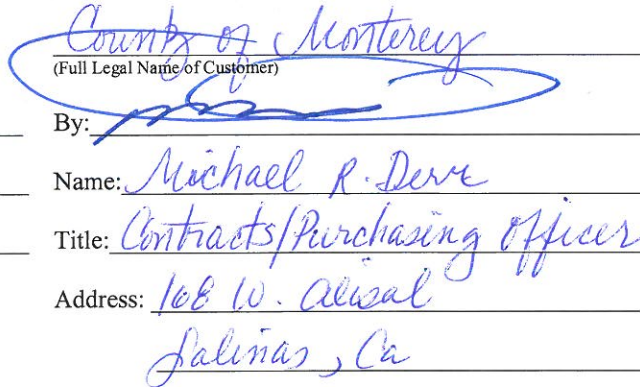 County of Monterey
(Full Legal Name of Customer)
By:
Name: Michael R. Derr
Title: Contracts/Purchasing Officer
Address: 168 W. Alisal
Salinas, Ca